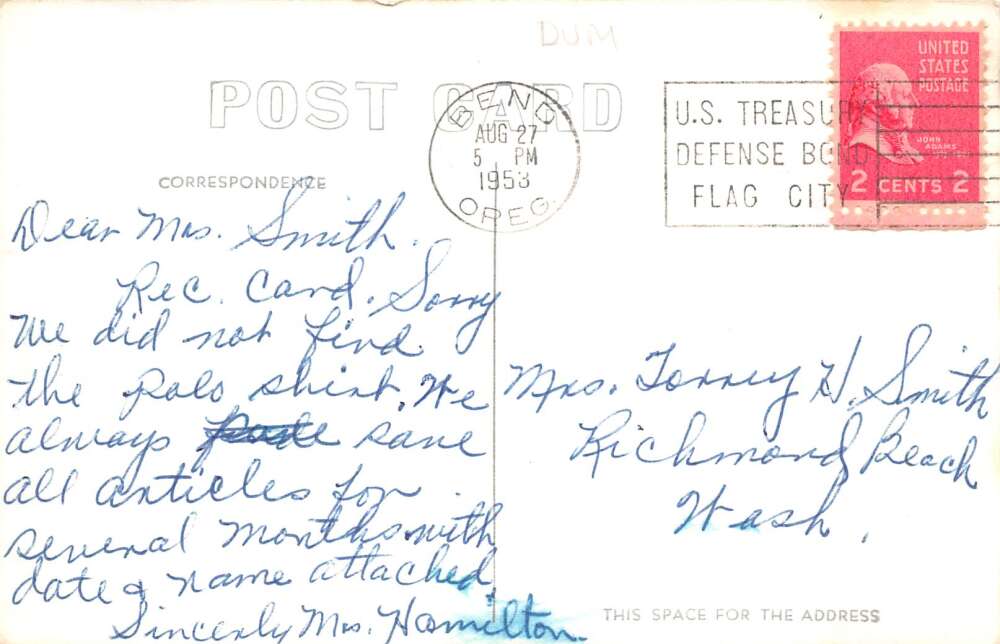 DUM
POST CARD
BEND
A
AUG 27
5 PM
1953
OREG.
U.S. TREASURY
DEFENSE BOND
FLAG CITY
UNITED
STATES
POSTAGE
JOHN
ADAMS
2 CENTS 2
CORRESPONDENCE
Dear Mrs. Smith.
Rec. Card. Sorry
We did not find
the polo shirt. We
always save
all articles for
several months with
date & name attached
Sincerely Mrs. Hamilton.
Mrs. Torrey H. Smith
Richmond Beach
Wash.
THIS SPACE FOR THE ADDRESS